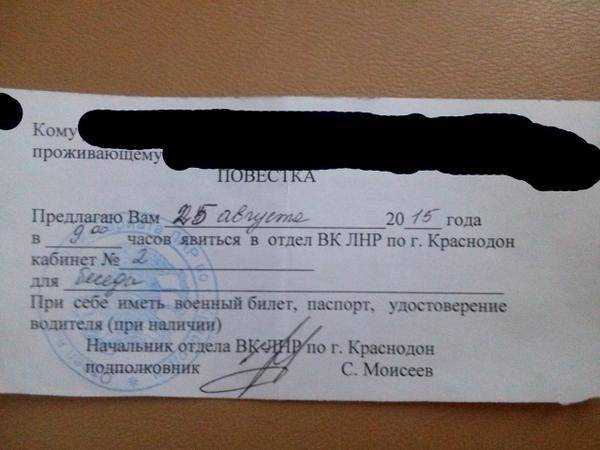 Кому
проживающему
ПОВЕСТКА
Предлагаю Вам 25 августа 2015 года
в 9 00 часов явиться в отдел ВК ЛНР по г. Краснодон
кабинет № 2
для беседы
При себе иметь военный билет, паспорт, удостоверение
водителя (при наличии)
Начальник отдела ВК ЛНР по г. Краснодон
подполковник С. Моисеев